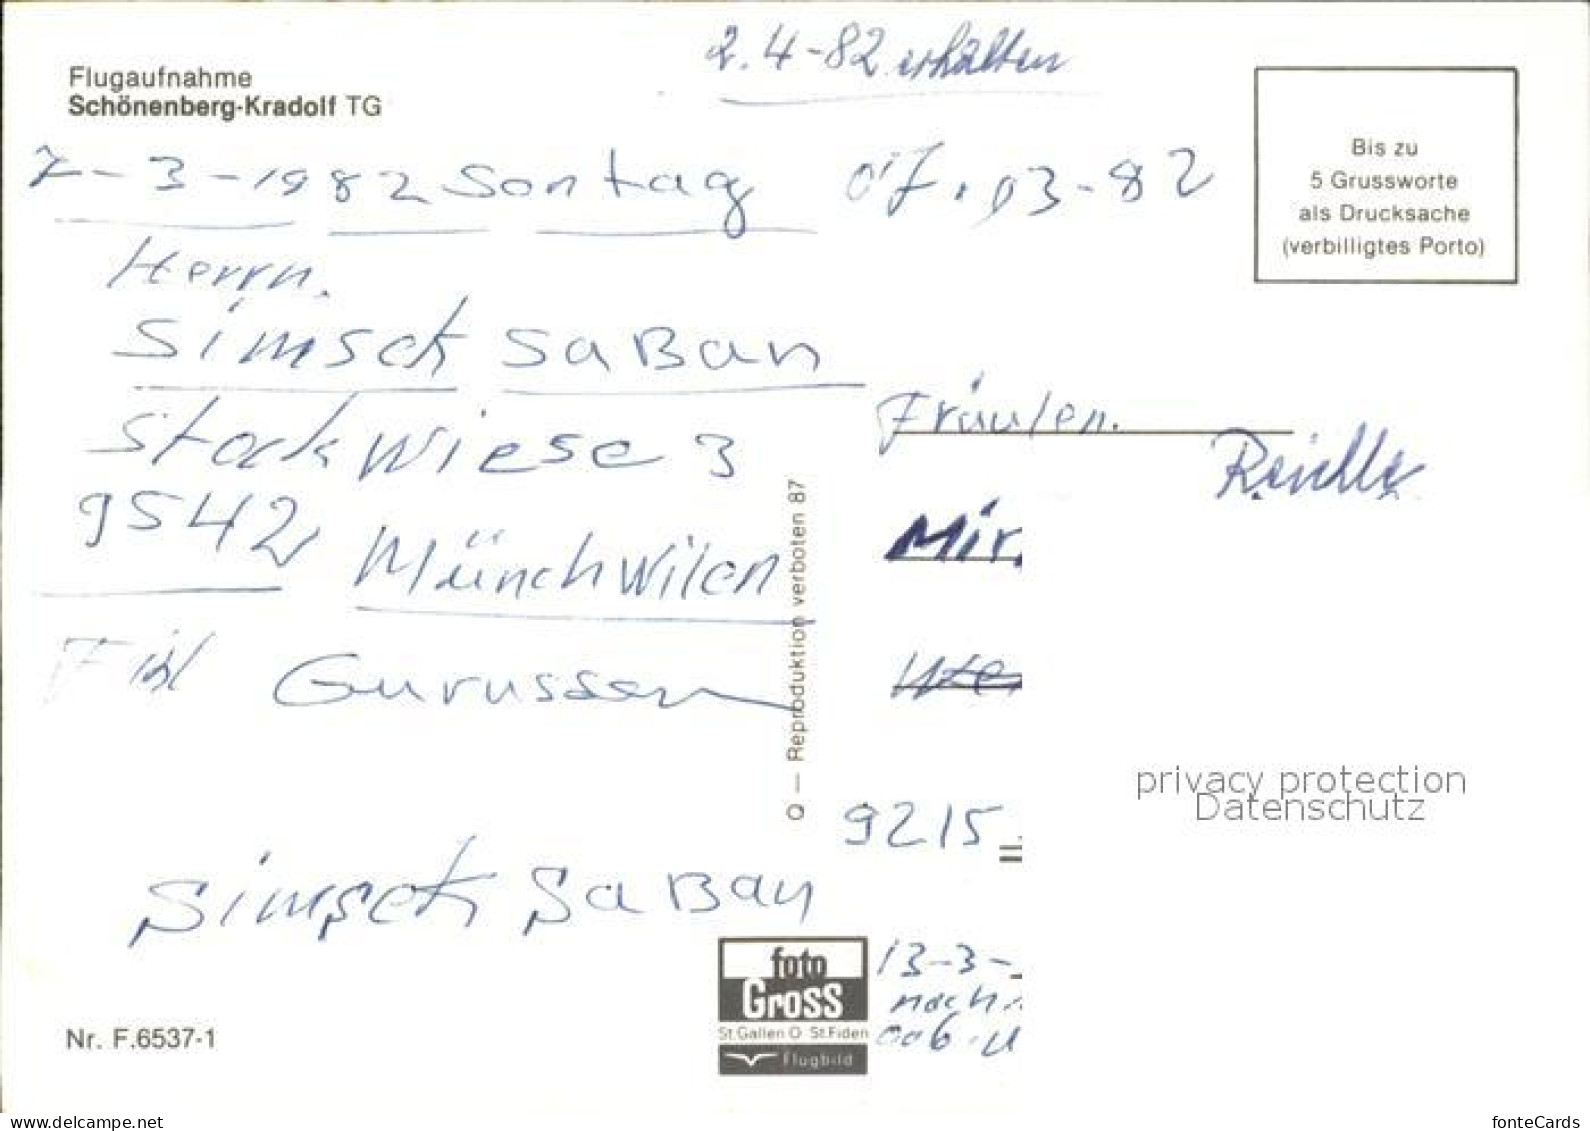 2.4-82 erhalten
Flugaufnahme
Schönenberg-Kradolf TG
7-3-1982 Sontag 07.03-82
Bis zu
5 Grussworte
als Drucksache
(verbilligtes Porto)
Herrn.
Simsek SaBan
Stockwiese 3
9542 Münchwilen
Gurussen
Simsek SaBan
Nr. F.6537-1
O — Reproduktion verboten 87
foto
Gross
St.Gallen O St.Fiden
Flugbild
Fräulen.
Mir.
9215
13-3-
nach
privacy protection
Datenschutz
www.delcampe.net
fonteCards